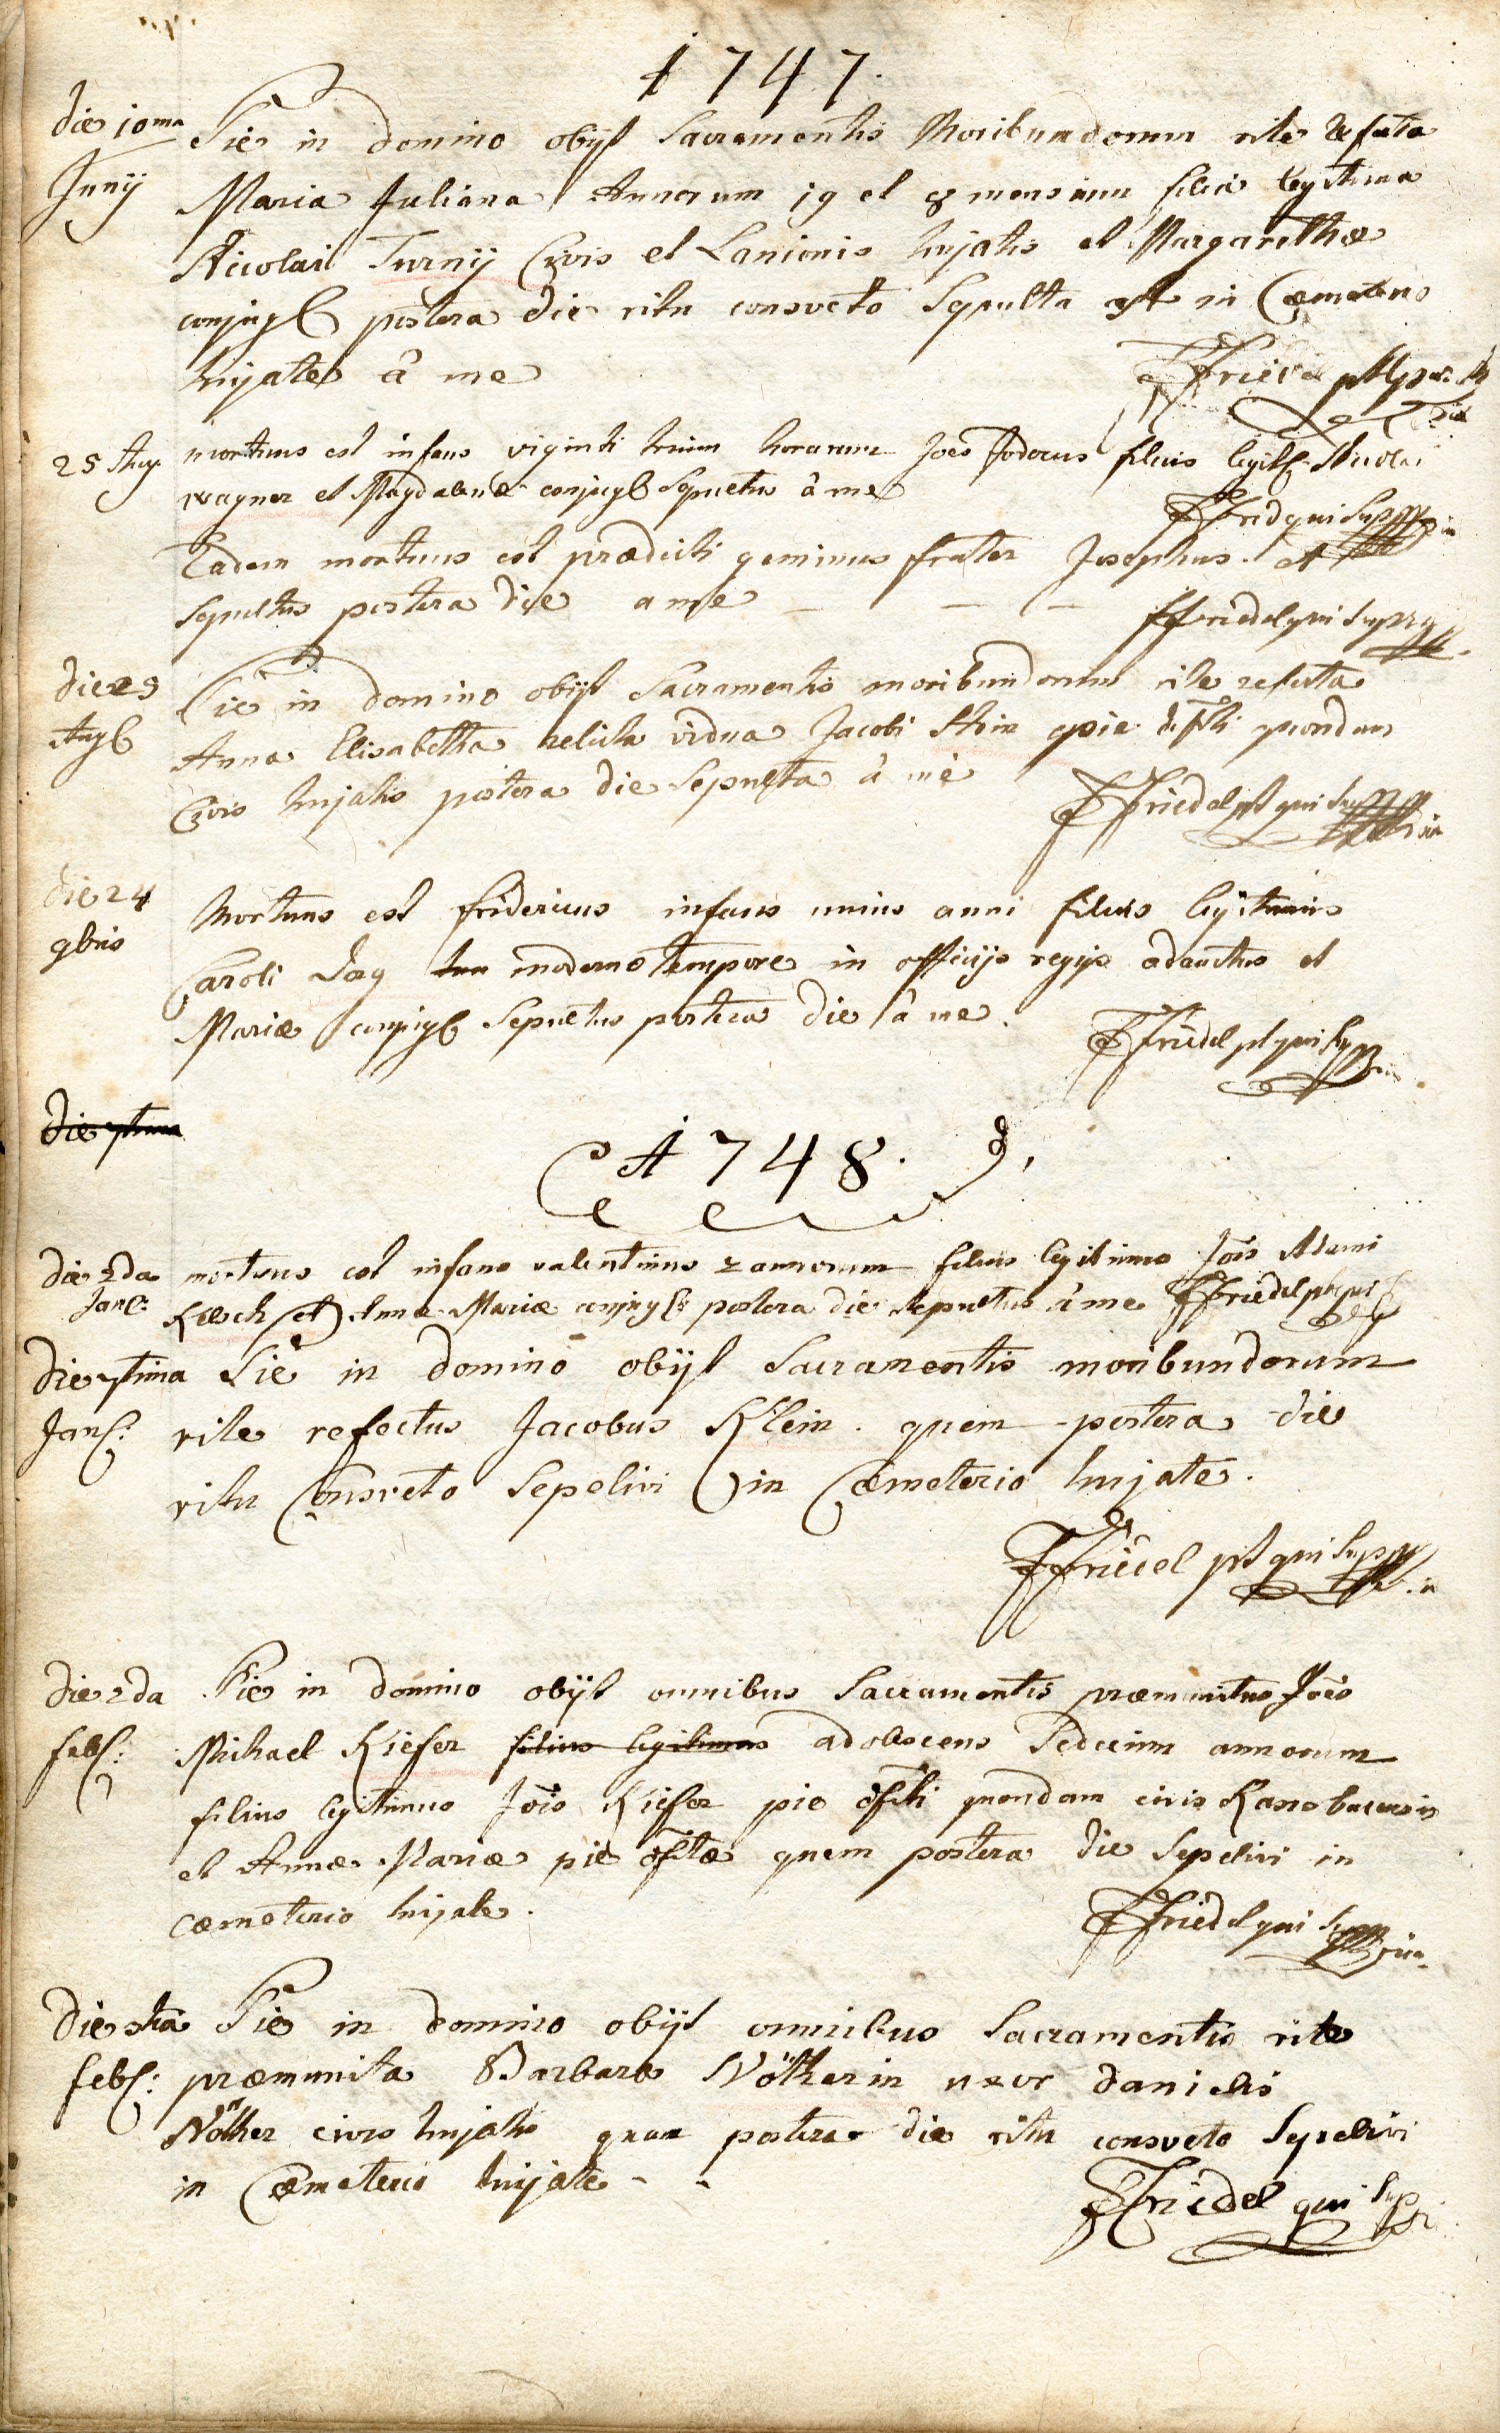 1747.
die 10ma Pie in domino obijt Sacramentis Moribundorum rite refecta
Junij Maria Juliana Annorum 19 et 8 mensium filia legitima
Nicolai Turnij Civis et Lanionis hujatis et Margarethæ
conjug: postera die ritu consveto Sepulta est in Cæmeterio
hujate â me
FFriedel
25 Aug. mortuus est infans viginti trium horarum Joes Jodocus filius legit: Nicolai
wagner et Magdalenæ conjug: Sepultus â me
FFridel qui Supra
Eadem mortuus est prædicti geminus frater Josephus. et
Sepultus postera die a me — — —
FFriedel qui Supra
die 29 Pie in domino obijt Sacramentis moribundorum rite refecta
Aug: Anna Elisabetha relicta vidua Jacobi pie defti quondam
Civis hujatis postera die Sepulta â me
FFriedel pt qui Supra
die 24 Mortuus est fridericus infans unius anni filius legitimus
9bris Caroli Day tun moderno tempore in officijs regijs adauctus et
Mariæ conjug: Sepultus postera die â me.
FFriedel pt qui Supra
die 7tima
1748.
die 2da mortuus est infans valentinus 2 annorum filius legitimus Jois Adami
Jan: Kæsch et Annæ Mariæ conjug: postera die sepultus â me FFriedel pt qui S
die 7tima Pie in domino obijt Sacramentis moribundorum
Jan: rite refectus Jacobus Klein. quem postera die
ritu Consveto Sepelivi in Cæmeterio hujate.
FFriedel pt qui Supra
die 2da Pie in domino obijt omnibus Sacramentis præmunitus Joes
feb: Michael Kiefer filius legitimus adolescens Sedecim annorum
filius legitimus Jois Kiefer pie defti quondam civis
et Annæ Mariæ pie deftæ quem postera die Sepelivi in
cæmeterio hujate.
FFriedel qui Supra
Pie in domino obijt omnibus Sacramentis rite
feb: præmunita Barbara Nötherin uxor danielis
Nöther civis hujatis quam postera die ritu consveto Sepelivi
in Cæmeterio hujate - -
FFriedel qui Supra